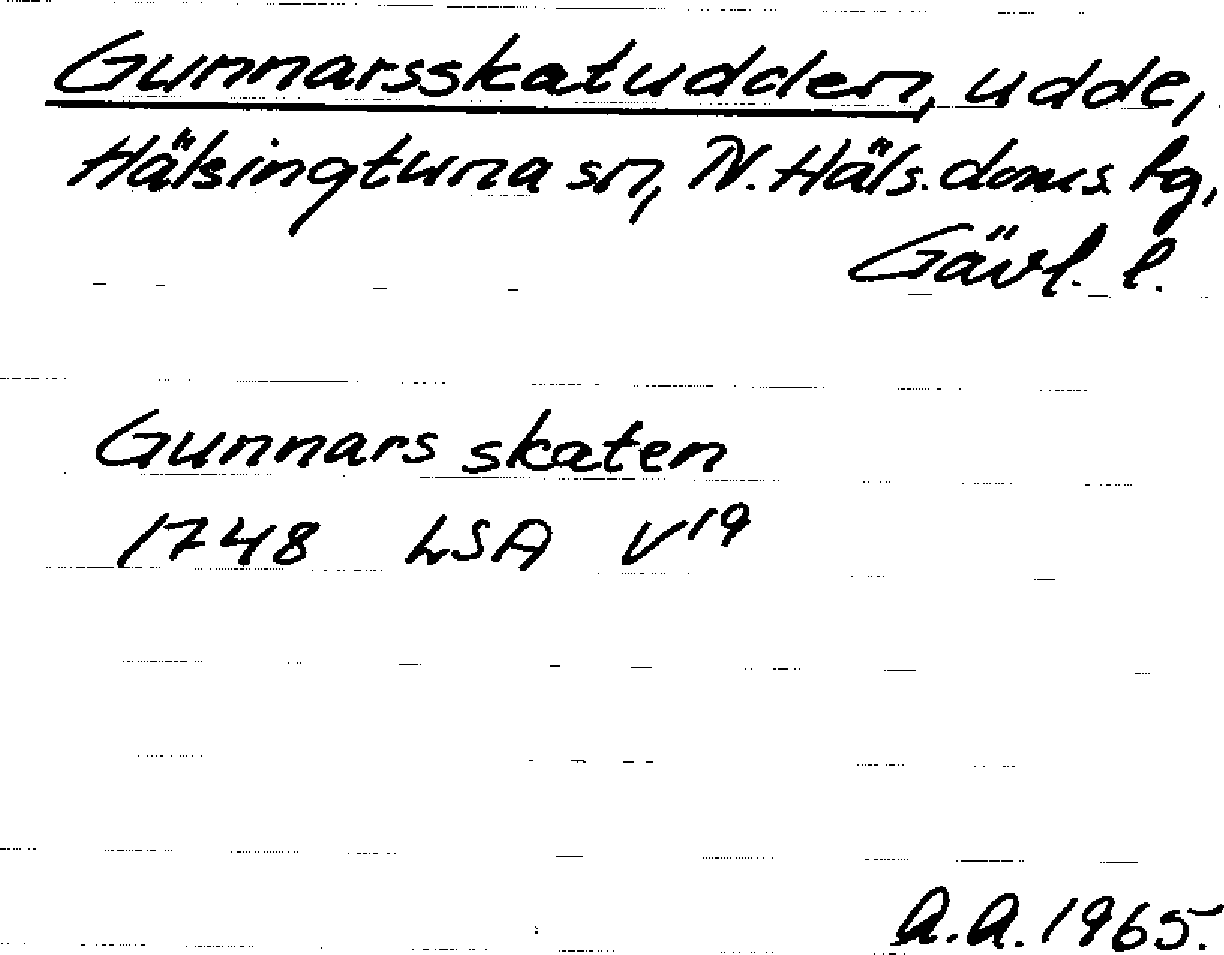 Gunnarsskatudden, udde,
Hälsingtuna sn, N. Häls. doms. hg,
Gävl. l.
Gunnars skaten
1748 LSA V¹⁹
A.A. 1965.